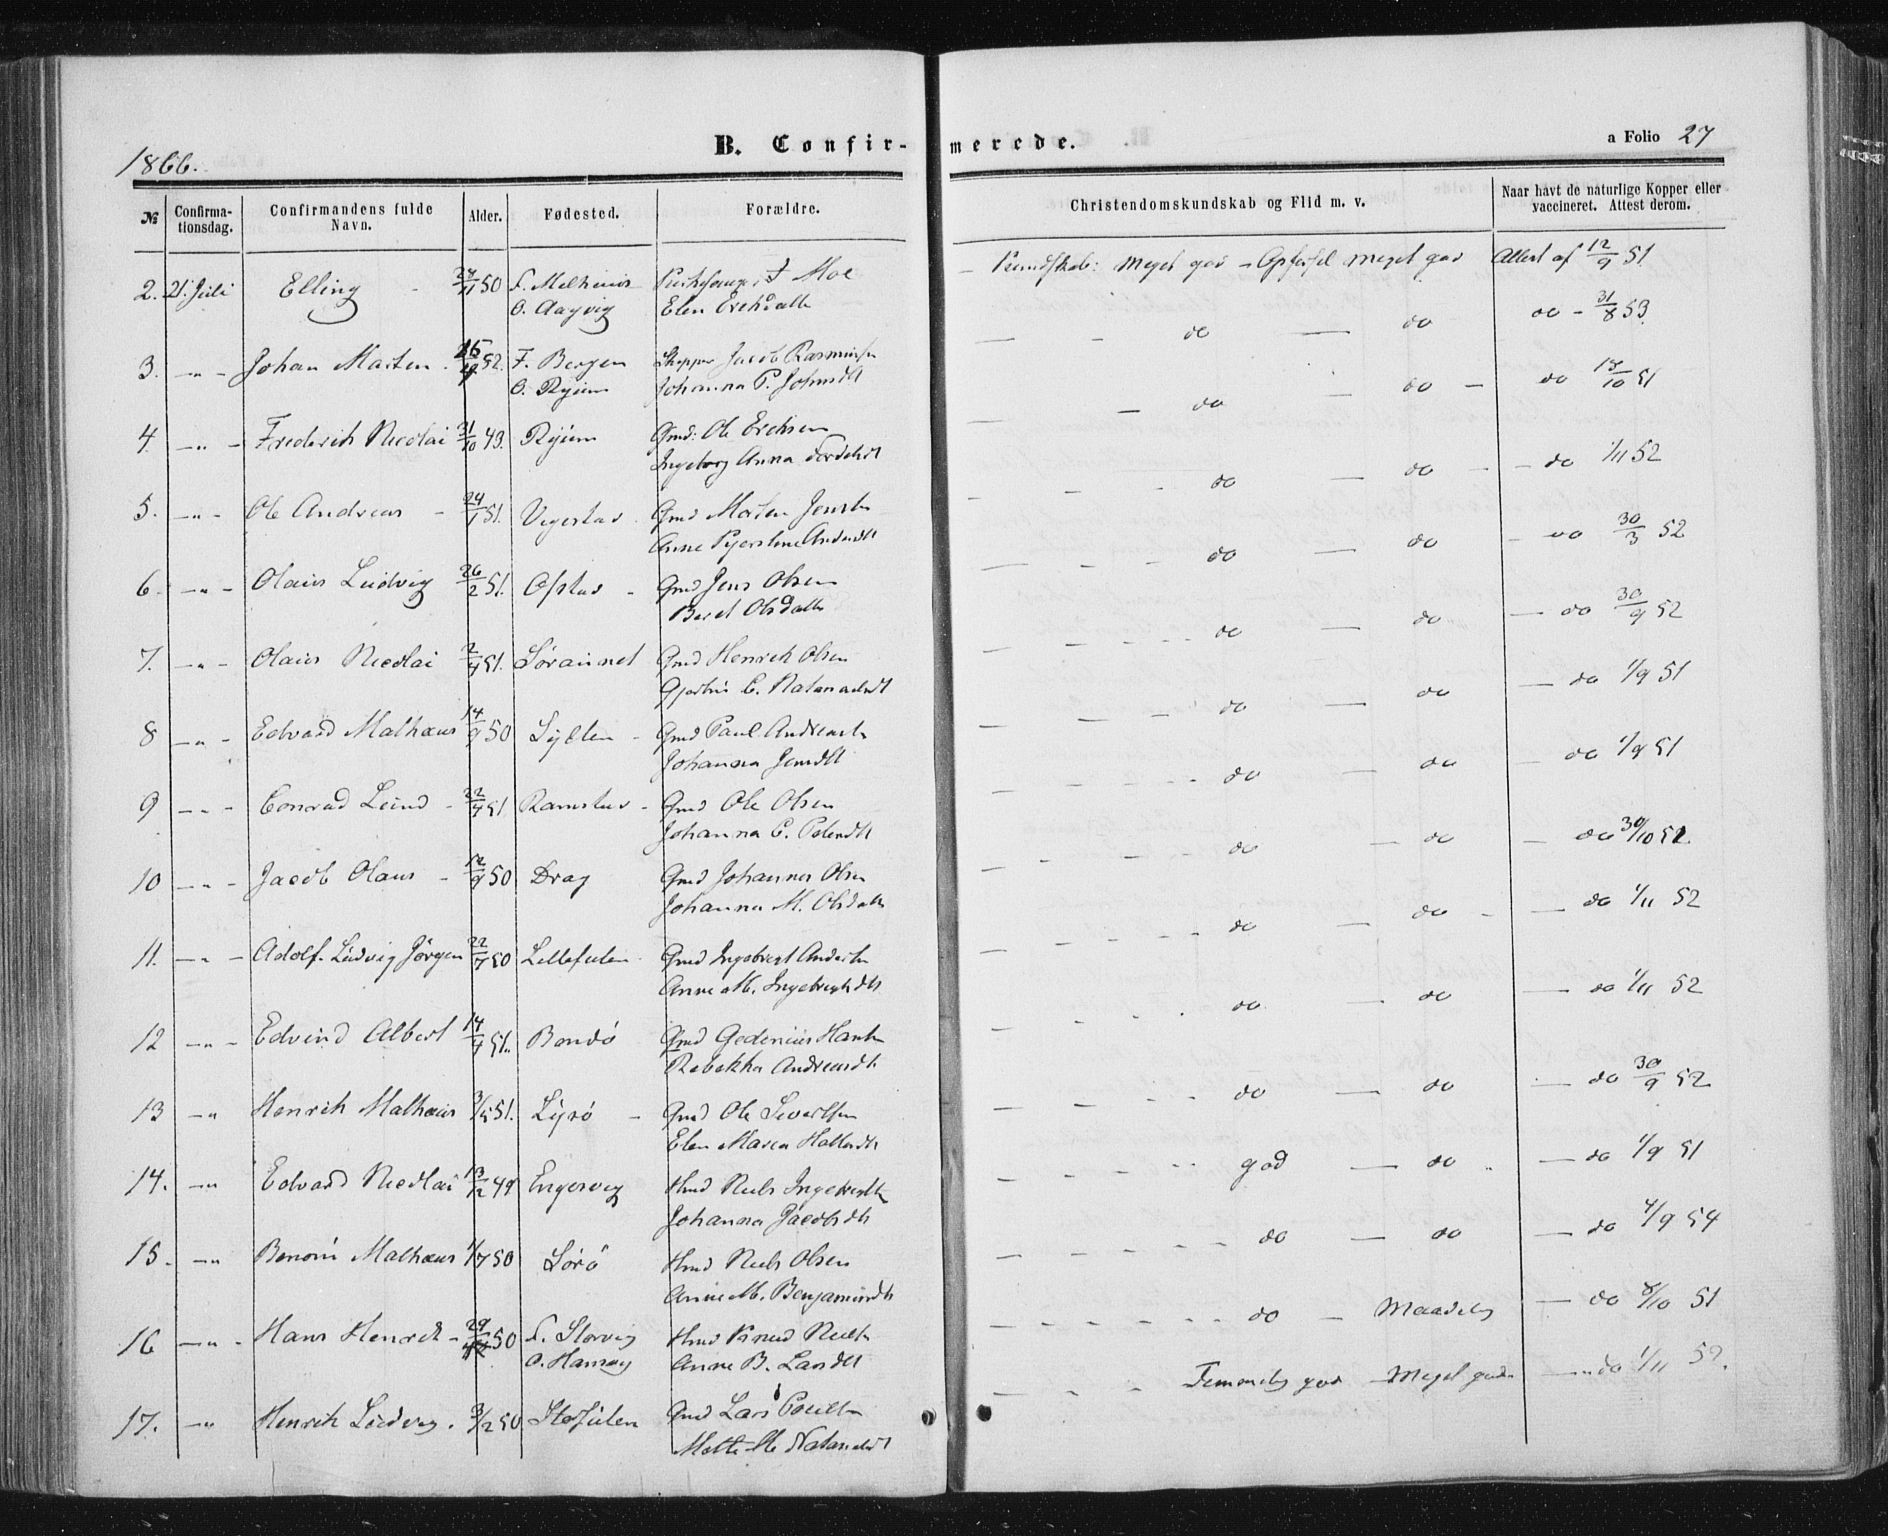 1866.
B. Confir-
merede.
a Folio 27
№
Confirma-
tionsdag.
Confirmandens fulde
Navn.
Alder.
Fødested.
Forældre.
Christendomskundskab og Flid m. v.
Naar havt de naturlige Kopper eller
vaccineret. Attest derom.
2. 21 Juli Elling 24/11 50 f. Melhuus
O. Aagvig
Moe
Elen Erchdatt
Kundskab: Meget god - Opførsel meget god Attest af 12/9 51.
3. -"- Johan Morten 52. F. Bergen Skipper Jacob Rasmuss
O. Ryum Johanna P. Johnsdt
do do do - 31/8 53
4. -"- Frederik Nicolai 31/10 49. Ryum Gmd: Ole Ericksen
Ingeborg Anna
do do do 17/10 51
5. -"- Ole Andreas 24/1 51. Vegestad Gmd Morten Jenss
Anne Kjerstine Andersdt
do do do 1/11 52
6. -"- Olaus Ludvig 26/2 51. Ofstad Gmd Jens Olsen
Beret Olsdatt
do do do 30/3 52
7. -"- Olaus Nicolai 2/4 51. Gmd Henrik Olsen
C. Natanaelsdt
do do do 30/9 52
8 -"- Edvard Mathæus 14/9 50 Sylten Gmd Paul Andreass
Johanna Jensdt
do do do 1/9 51
9 -"- Conrad Lund 22/4 51 Ramstad Gmd Ole Olsen
Johanna C. Pedersdt
do do do 1/9 51
10 -"- Jacob Olaus 12/9 50 Drag Gmd Johannes Olsen
Johanna M. Olsdatt
do do do 30/10 52
11. -"- Adolf Ludvig Jørgen 22/7 50 Lillefulen Gmd Ingebregt Anders
Anne M. Ingebregtsdt
do do do 1/11 52
12 -"- Edvind Albert 14/4 51. Bondø Gmd Gedenius Hans
Rebekka Andreasdt
do do do 1/11 52
13 -"- Henrik Mathæus 51. Lyrø Gmd Ole Sivertsen
Elen Maria
do do do 30/9 52
14. -"- Edvard Nicolai 13/12 49 Engesvig Hmd Niels Ingebregts
Johanna Jacobsdt
god do do 1/9 51
15. -"- Benoni Mathæus 1/7 50 Sørø Hmd Niels Olsen
Anne M. Benjaminsdt
do do do 4/9 54
16 -"- Hans Henrik 50 f. Storvig Hmd Knud Niels
O. Hansvig Anne B. Larsdt
do Maadelig do 8/10 51
17. -"- Henrik Ludvig. 3/2 50 Storfulen Gmd Lars Pouels
Mette M. Natanaelsdt
Temmelig god Meget god do 1/11 52.